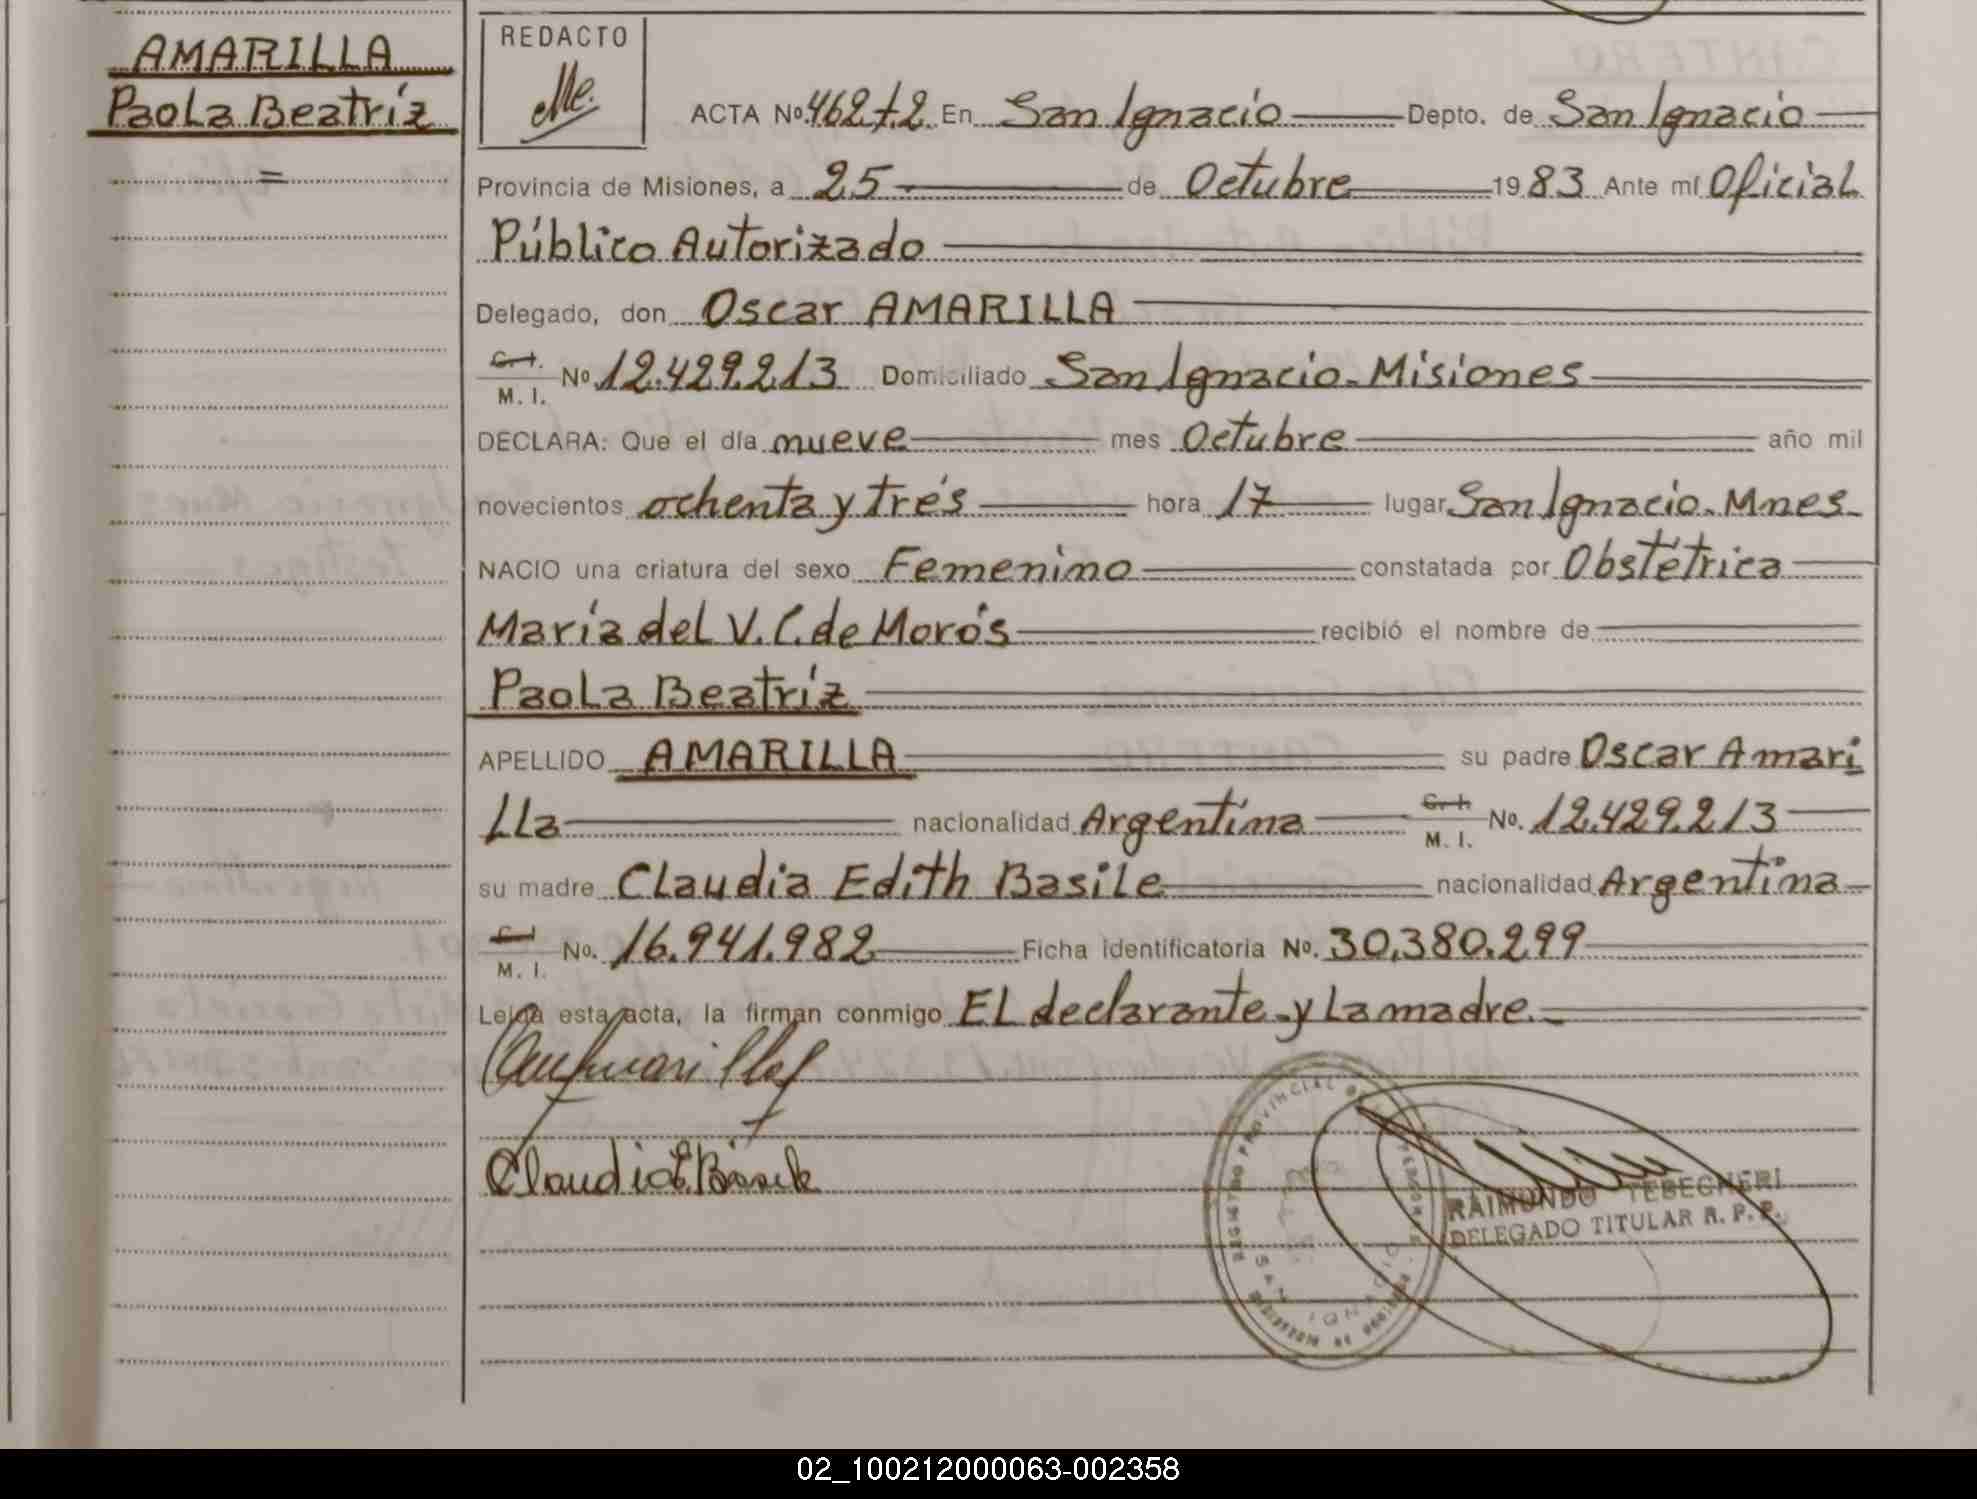 AMARILLA
Paola Beatríz
=
REDACTO
ACTA Nº 462 t2 En San Ignacio Depto. de San Ignacio
Provincia de Misiones, a 25 de Octubre 1983 Ante mí Oficial
Público Autorizado
Delegado, don Oscar AMARILLA
C. I.
M. I. Nº 12.429.213 Domiciliado San Ignacio. Misiones
DECLARA: Que el día nueve mes Octubre año mil
novecientos ochenta y trés hora 17 lugar San Ignacio. Mnes.
NACIO una criatura del sexo Femenino constatada por Obstétrica
María del V. C. de Morós recibió el nombre de
Paola Beatríz
APELLIDO AMARILLA su padre Oscar Amari
lla nacionalidad Argentina C. I. M. I. Nº. 12.429.213
su madre Claudia Edith Basile nacionalidad Argentina
C. I.
M. I. Nº. 16.941.982 Ficha identificatoria Nº. 30.380.299
Leida esta acta, la firman conmigo El declarante y la madre.
Claudia E. Basile
REGISTRO PROVINCIAL DE
SAN IGNACIO
RAIMUNDO TEBEGHERI
DELEGADO TITULAR R. P. P.
02_100212000063-002358